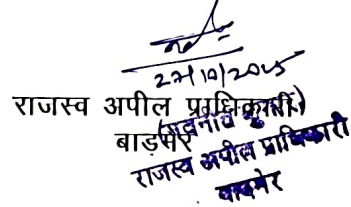 27/10/2005
राजस्व अपील प्राधिकारी)
बाड़मेर
राजस्व अपील प्राधिकारी
बाडमेर